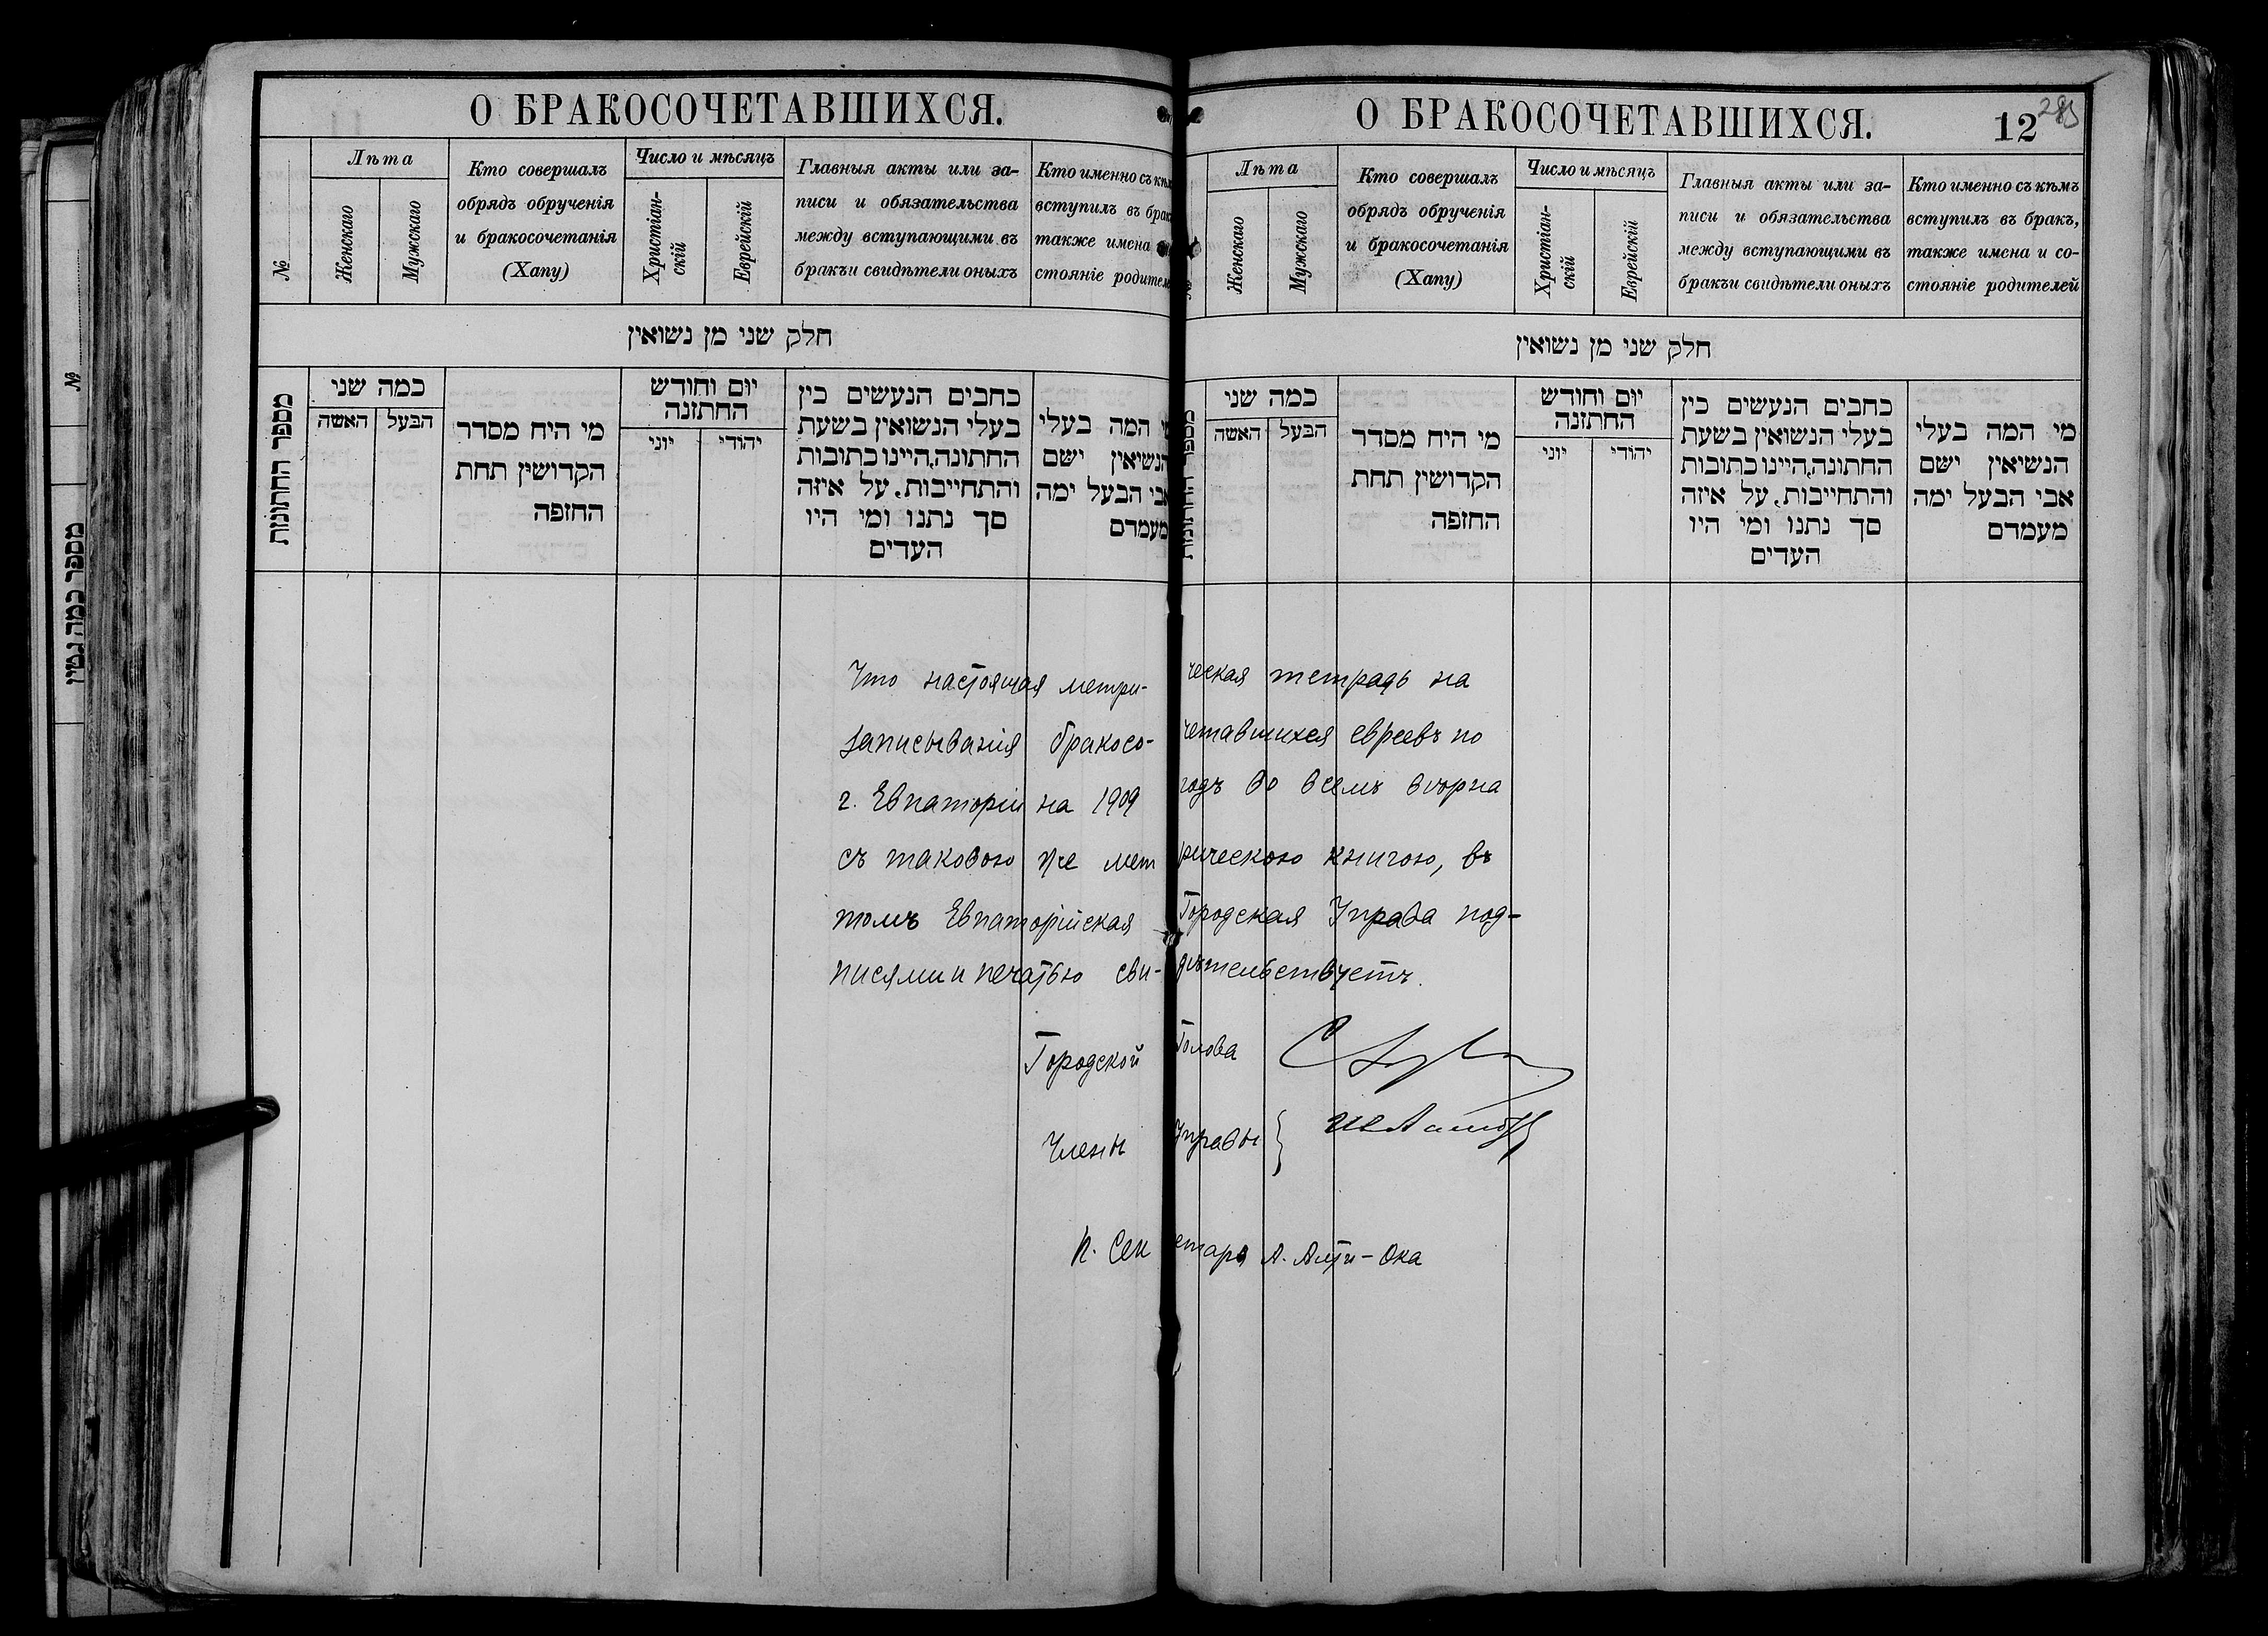 О БРАКОСОЧЕТАВШИХСЯ.
№
Лѣта
Женскаго
Мужскаго
Кто совершалъ
обрядъ обрученія
и бракосочетанія
(Хапу)
Число и мѣсяцъ
Христіан-
скій
Еврейскій
Главныя акты или за-
писи и обязательства
между вступающими въ
бракъи свидѣтели оныхъ
Кто именно съ
вступилъ въ
также имена
стояніе
חלק שני מן נשואין
מספר החתונות
כמה שני
האשה
הבעל
מי היח מסדר
הקדושין תחת
החזפה
יום וחודש
החתזנה
יוני
יהודי
כחבים הנעשים כין
בעלי הנשואין בשעת
החתונה,היינו כתובות
והתחייבות. על איזה
סך נתנו ומי היו
העדים
המה בעלי
הנשיאין ישם
אבי הבעל ימה
מעמדם
О БРАКОСОЧЕТАВШИХСЯ.
12
Лѣта
Женскаго
Мужскаго
Кто совершалъ
обрядъ обрученія
и бракосочетанія
(Хапу)
Число и мѣсяцъ
Христіан-
скій
Еврейскій
Главныя акты или за-
писи и обязательства
между вступающими въ
бракъи свидѣтели оныхъ
Кто именно съ кѣмъ
вступилъ въ бракъ,
также имена и со-
стояніе родителей
חלק שני מן נשואין
כמה שני
האשה
הבעל
מי היח מסדר
הקדושין תחת
החזפה
יום וחודש
החתזנה
יוני
יהודי
כחבים הנעשים כין
בעלי הנשואין בשעת
החתונה,היינו כתובות
והתחייבות. על איזה
סך נתנו ומי היו
העדים
מי המה בעלי
הנשיאין ישם
אבי הבעל ימה
מעמדם
Что настоящая метри-ческая тетрадь на
записыванія бракосо-четавшихся евреевъ по
г. Евпаторіи на 1909 годъ во всемъ вѣрна
съ таковою же метрическою книгою, въ
томъ Евпаторійская Городская Управа под-
писями и печатью сви-дѣтельствуетъ.
Городской Голова
Члены Управы
П. Секетаря А. Алти-Ока
№
מספר כמה גטין